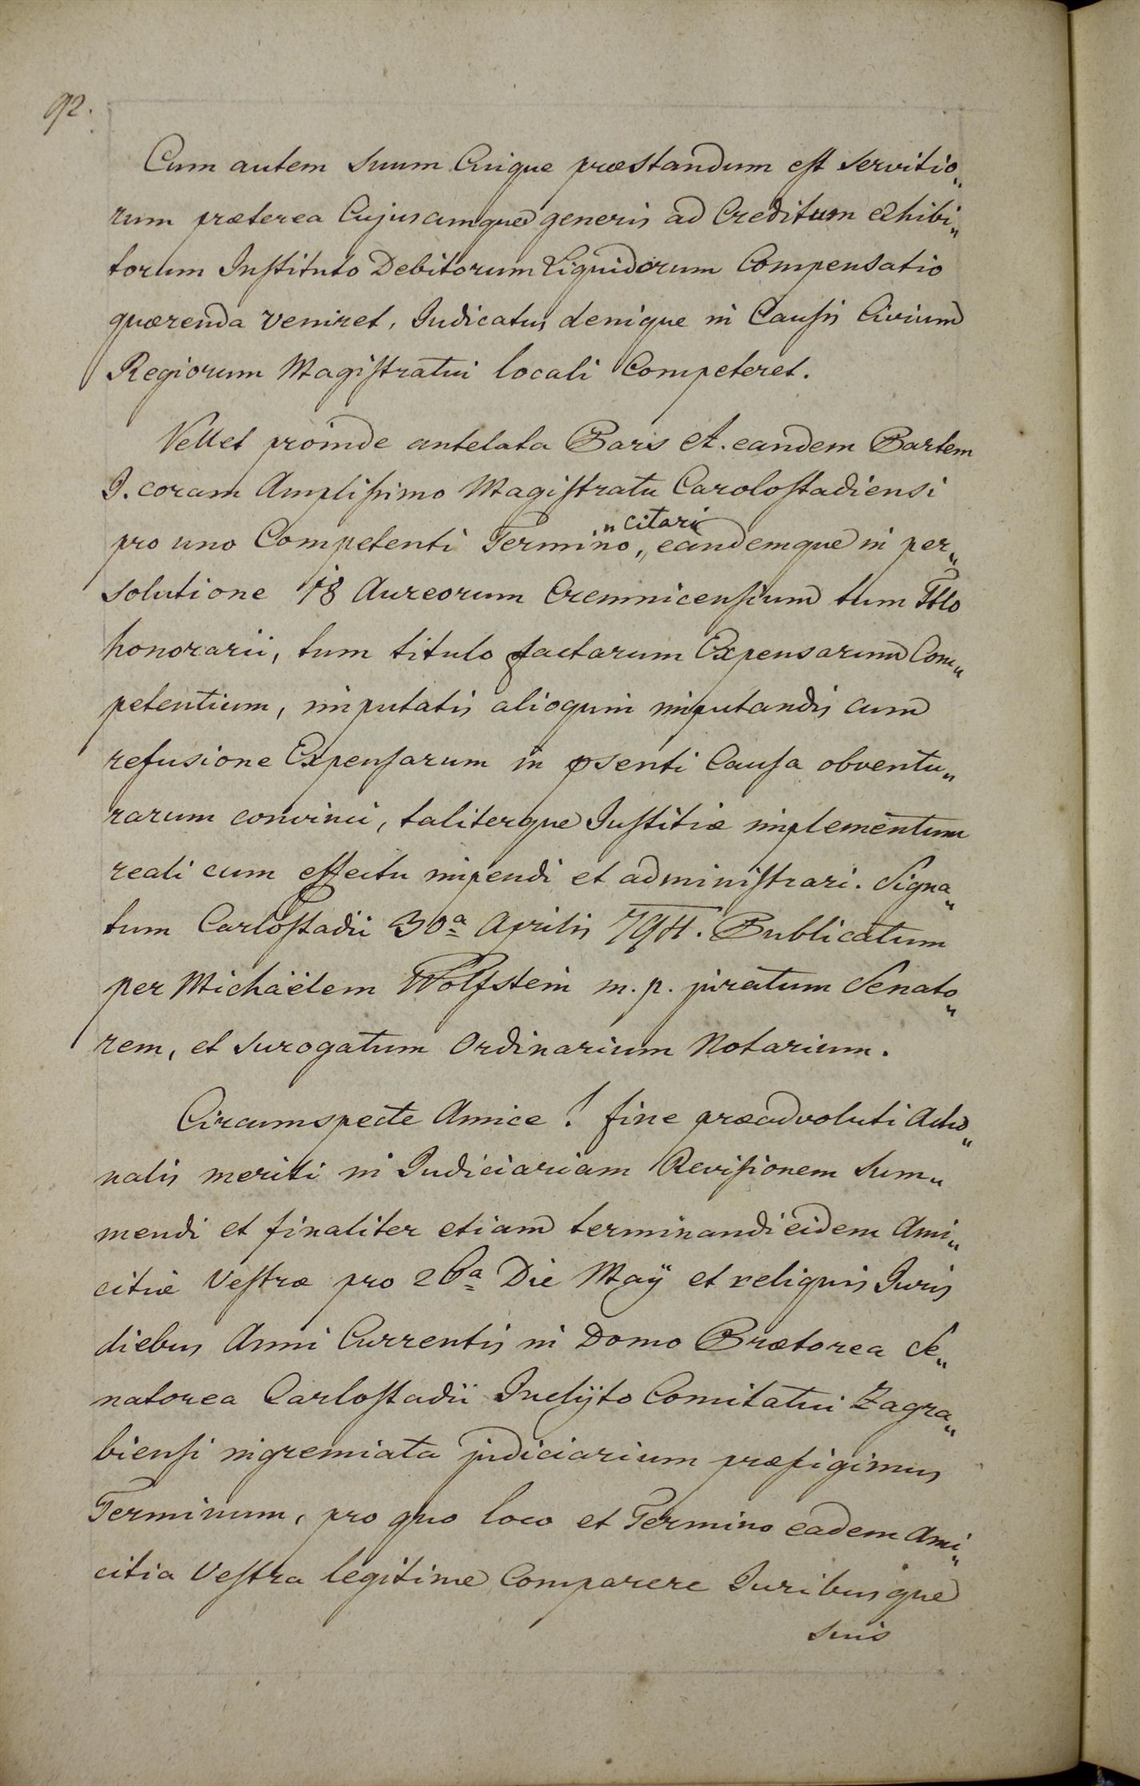 92.
Cum autem suum Cuique præstandum est servitio„
rum præterea Cujuscumque generis ad Creditum exhibi„
torum Instituto Debitorum Liquidorum Compensatio
quærenda veniret, Judicatus denique in Causis Civium
Regiorum Magistratui locali Competeret.
Vellet proinde antelata Pars A. eandem Partem
I. coram Amplissimo Magistratu Carolostadiensi
„ citari
pro uno Competenti Termino, „ eandemque in per„
solutione 18 Aureorum Cremnicensium tum Ttlo
honorarii, tum titulo factarum Expensarum Com„
petentium, imputatis alioquin imputandis cum
refusione Expensarum in psenti Causa obventu„
rarum convinci, taliterque Justitiæ implementum
reali cum effectu impendi et administrari. Signa„
tum Carlostadii 30a Aprilis 794. Publicatum
per Michaëlem Wolfstein m. p. juratum Senato„
rem, et surogatum Ordinarium Notarium.
Circumspecte Amice! fine præadvoluti Actio„
nalis meriti in Judiciariam Revisionem sum„
mendi et finaliter etiam terminandi eidem Ami„
citiæ Vestræ pro 26a Die Maÿ et reliquis Juris
diebus Anni Currentis in Domo Prætorea Se„
natorea Carlostadii Inclÿto Comitatui Zagra„
biensi ingremiata judiciarium præfigimus
Terminum, pro quo loco et Termino eadem Ami„
citia Vestra legitime Comparere Juribusque
suis